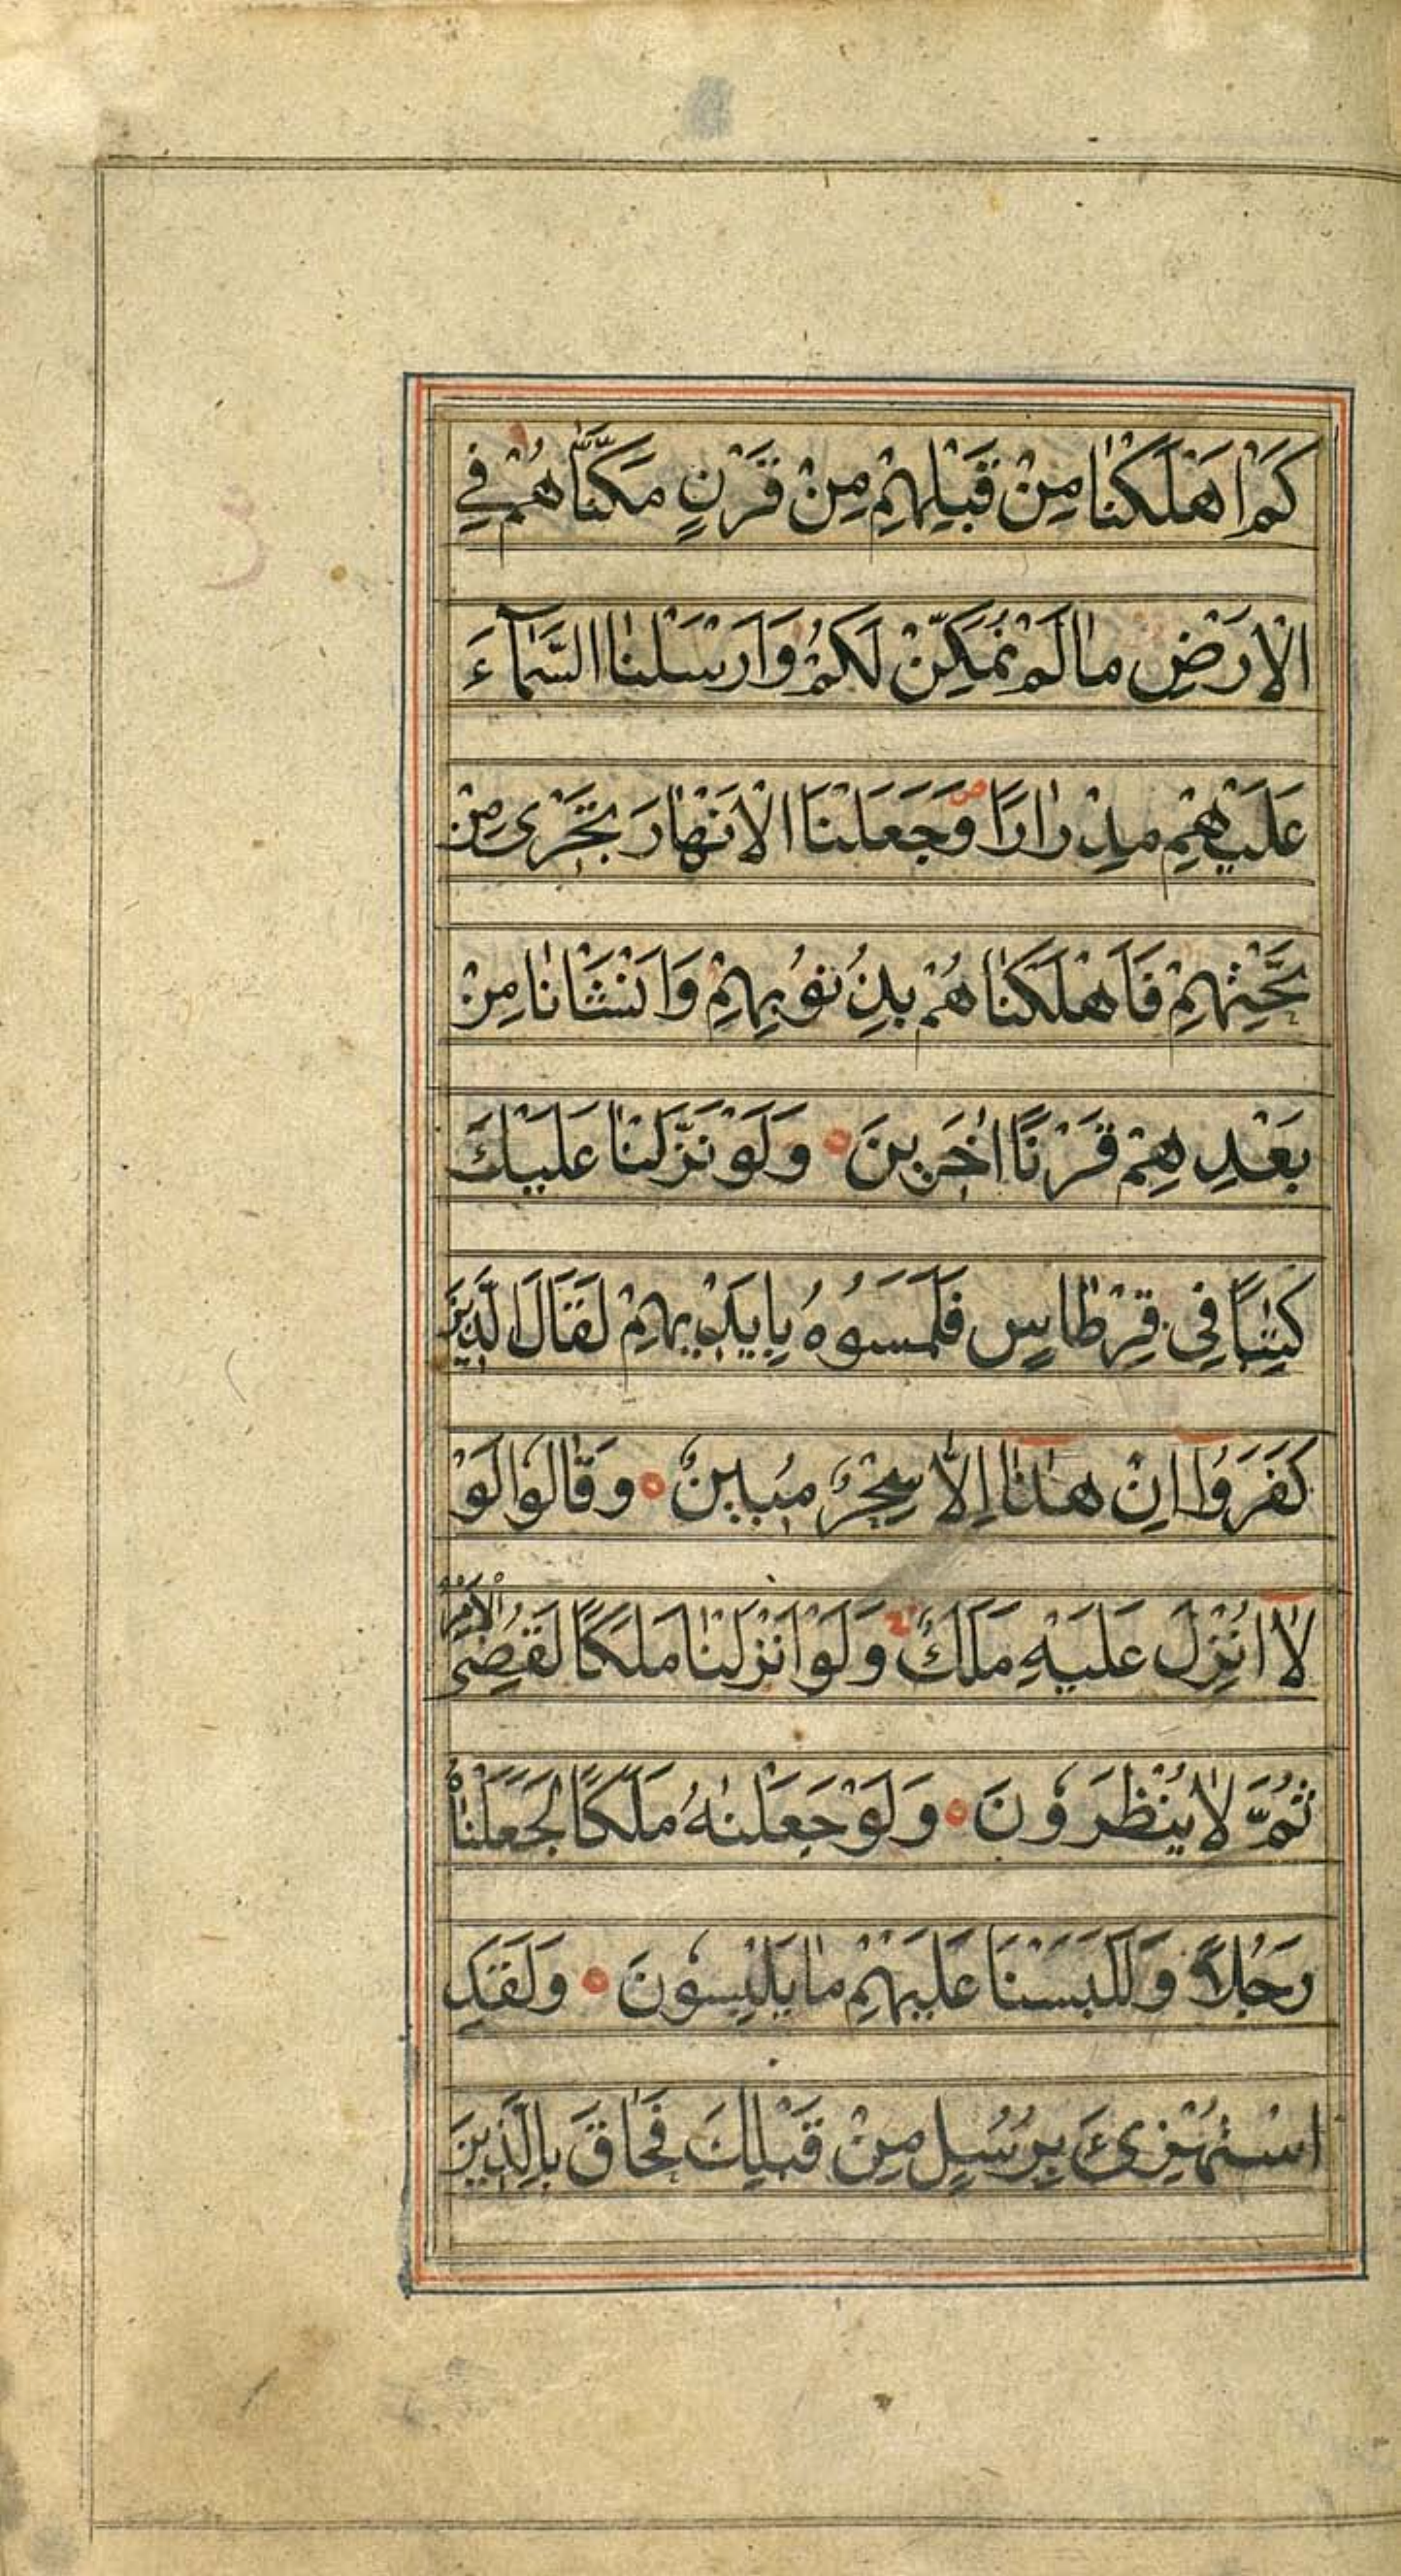 كَمْ اَهْلَكْنٰا مِنْ قَبْلِهِمْ مِنْ قَرْنٍ مَكَّنّٰاهُمْ فِي
الْاَرْضِ مٰا لَمْ نُمَكِّنْ لَكُمْ وَاَرْسَلْنٰا السَّمٰٓاءَ
عَلَيْهِمْ مِدْرٰارًا وَجَعَلْنَا الْاَنْهٰارَ تَجْرٖى مِنْ
تَحْتِهِمْ فَاَهْلَكْنٰاهُمْ بِذُنُوبِهِمْ وَاَنْشَاْنٰا مِنْ
بَعْدِهِمْ قَرْنًا اٰخَرٖينَ وَلَوْ نَزَّلْنٰا عَلَيْكَ
كِتٰبًا فِي قِرْطٰاسٍ فَلَمَسُوهُ بِاَيْدٖيهِمْ لَقَالَ الَّذٖينَ
كَفَرُوا اِنْ هٰذٰا اِلّٰا سِحْرٌ مُبٖينٌ وَقٰالُوا لَوْ
لٰا اُنْزِلَ عَلَيْهِ مَلَكٌ وَلَوْ اَنْزَلْنٰا مَلَكًا لَقُضِىَ الْاَمْرُ
ثُمَّ لٰا يُنْظَرُونَ وَلَوْ جَعَلْنٰهُ مَلَكًا لَجَعَلْنٰاهُ
رَجُلًا وَلَلَبَسْنَا عَلَيْهِمْ مٰا يَلْبِسُونَ وَلَقَدِ
اسْتُهْزِئَ بِرُسُلٍ مِنْ قَبْلِكَ فَحٰاقَ بِالَّذٖينَ